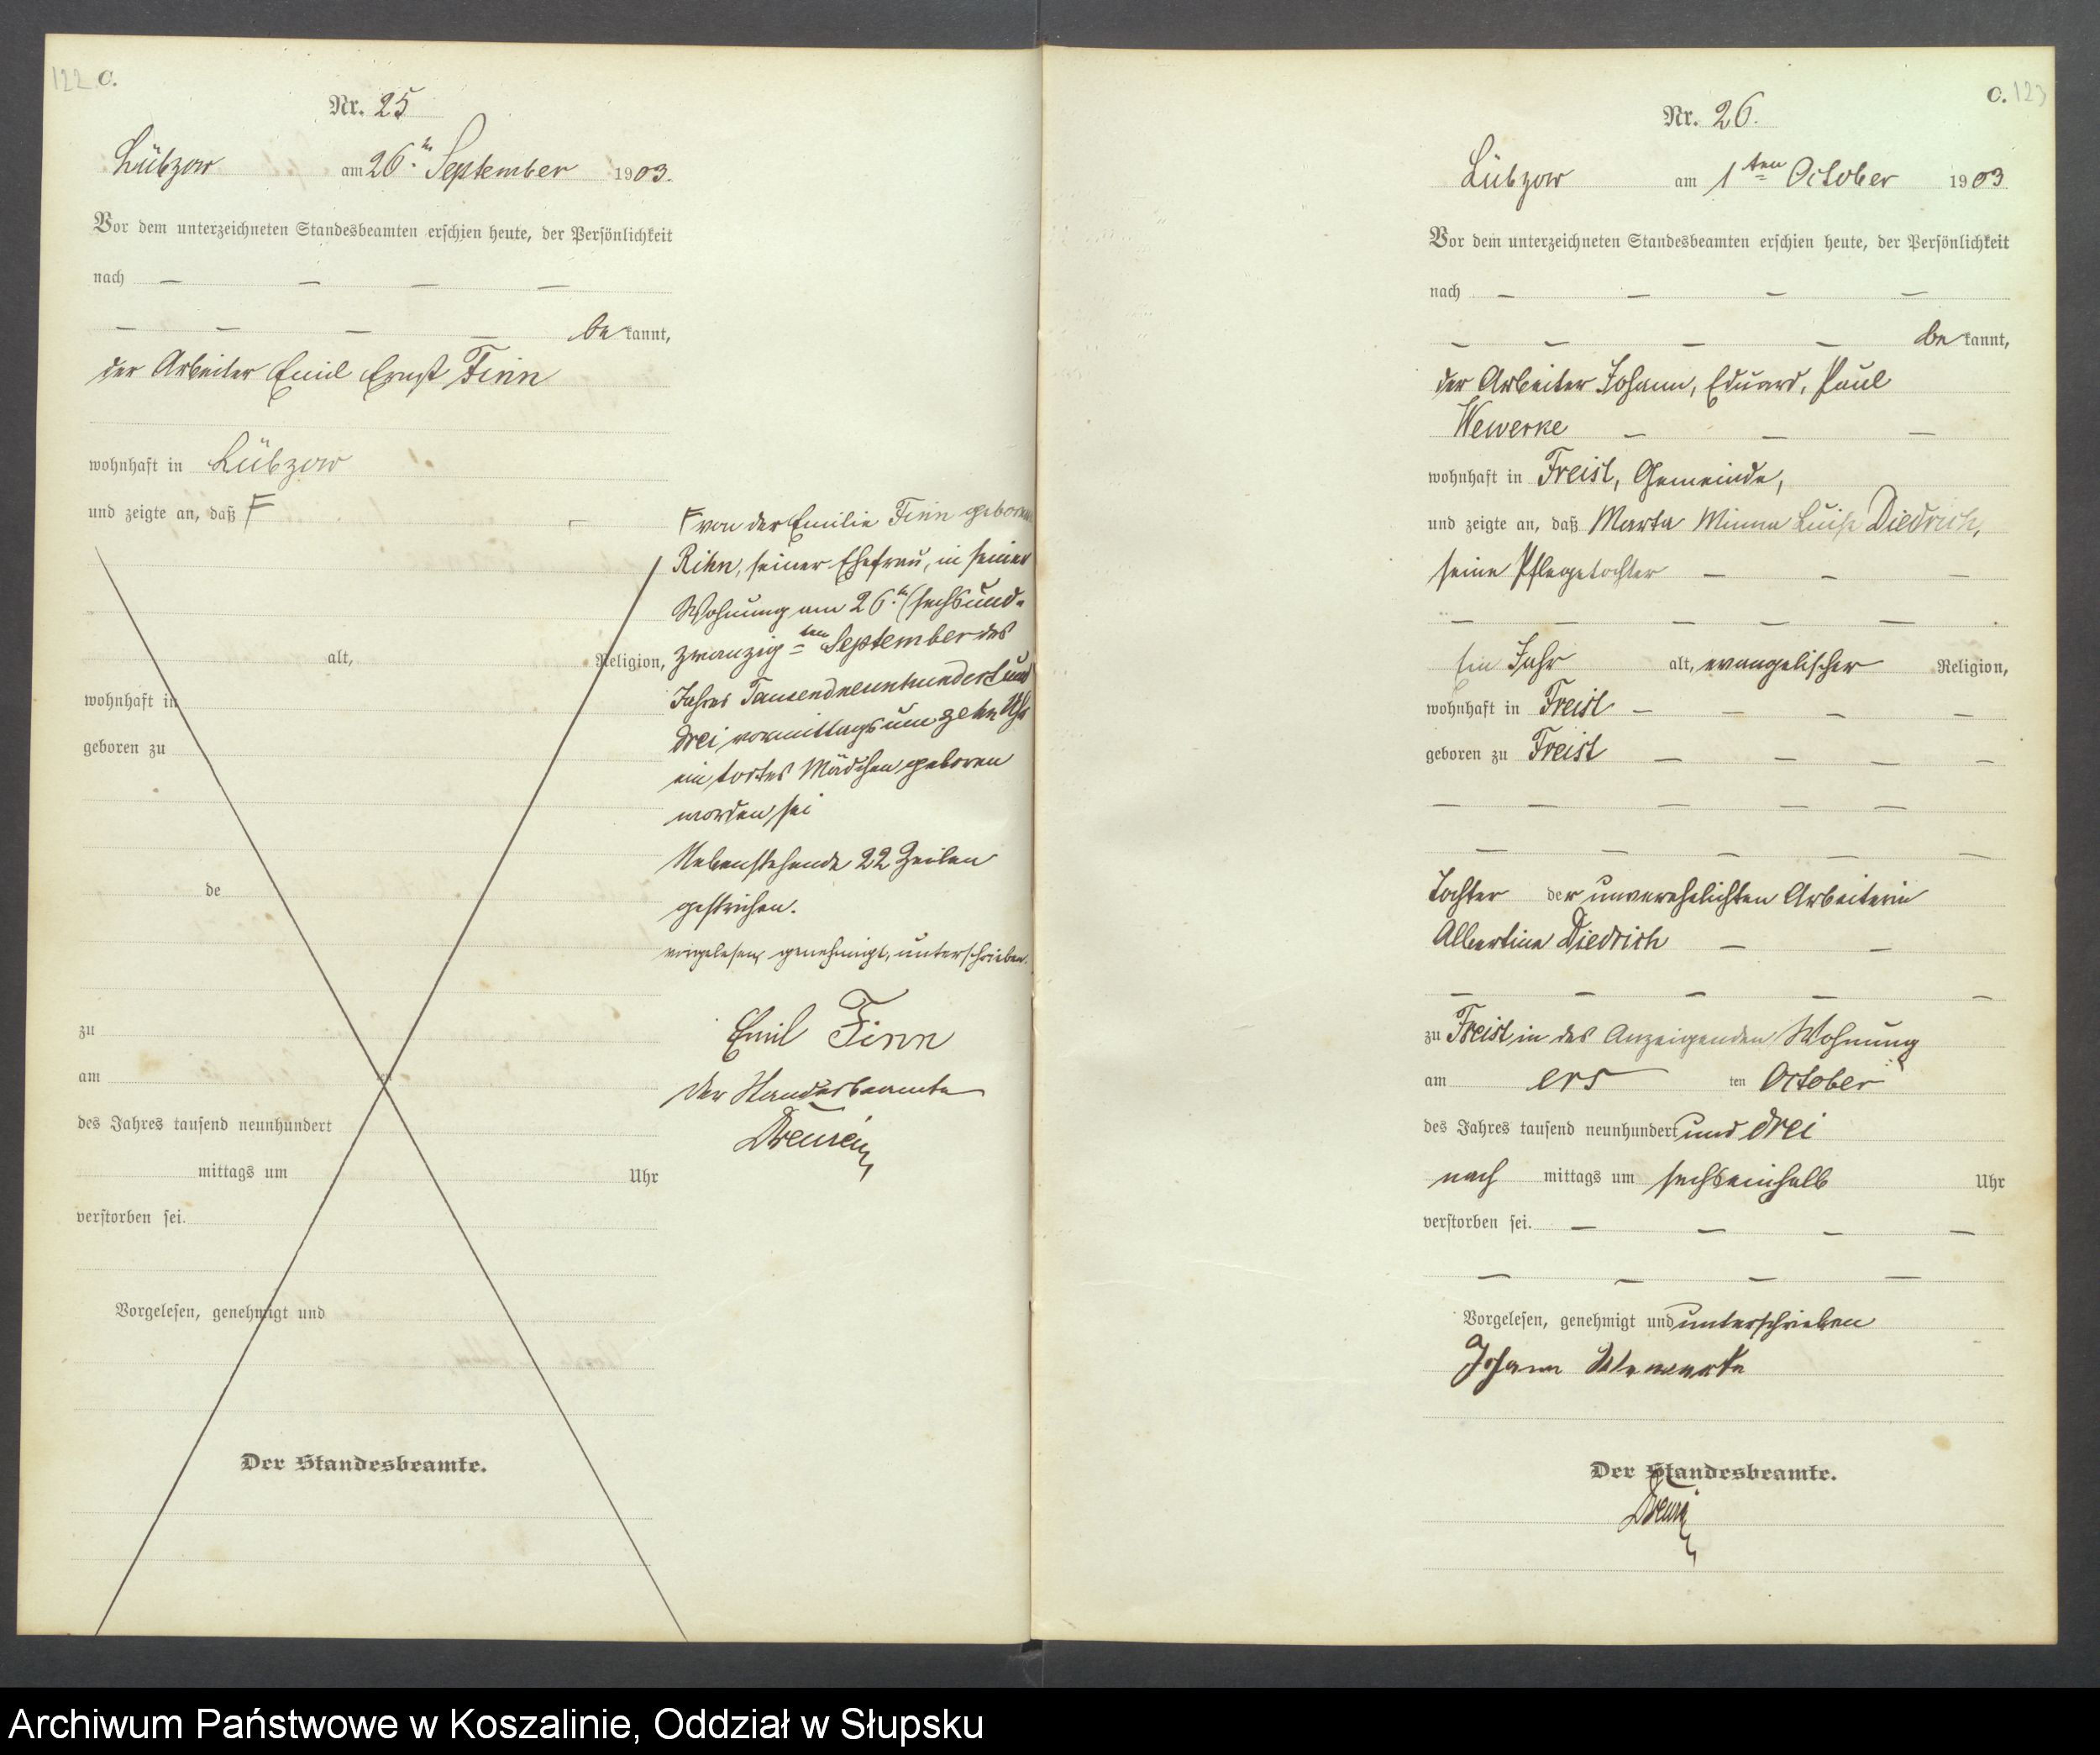 122 C.
Nr. 25
Lübzow am 26.ten September 1903.
Vor dem unterzeichneten Standesbeamten erschien heute, der Persönlichkeit
nach — — — —
— — — — be kannt,
der Arbeiter Emil Ernst Finn
wohnhaft in Lübzow
und zeigte an, daß F
alt, Religion,
wohnhaft in
geboren zu
de
zu
am ten
des Jahres tausend neunhundert
mittags um Uhr
verstorben sei.
Vorgelesen, genehmigt und
Der Standesbeamte.
F von der Emilie Finn geborene
Rihn, seiner Ehefrau, in seiner
Wohnung am 26.ten (sechsund-
zwanzigten September des
Jahres Tausendneunhundert und
drei vormittags um zehn Uhr
ein todtes Mädchen geboren
worden sei
Nebenstehende 22 Zeilen
gestrichen.
vorgelesen, genehmigt, unterschrieben.
Emil Finn
Der Standesbeamte
C. 123
Nr. 26.
Lübzow am 1ten October 1903
Vor dem unterzeichneten Standesbeamten erschien heute, der Persönlichkeit
nach — — — —
— — — — be kannt,
der Arbeiter Johann, Eduard, Paul
Wewerke — — —
wohnhaft in Freist, Gemeinde,
und zeigte an, daß Marta Minna Luise Diedrich,
seine Pflegetochter — — —
— — — — —
Ein Jahr alt, evangelischer Religion,
wohnhaft in Freist — — — —
geboren zu Freist — — — —
— — — — —
— — — — —
Tochter der unverehelichten Arbeiterin
Albertine Diedrich — —
— — — — —
zu Freist in des Anzeigenden Wohnung
am ers ten October
des Jahres tausend neunhundert und drei
nach mittags um sechseinhalb Uhr
verstorben sei. — — — —
— — — —
Vorgelesen, genehmigt und unterschrieben
Johann Wewerke
Der Standesbeamte.
Archiwum Państwowe w Koszalinie, Oddział w Słupsku